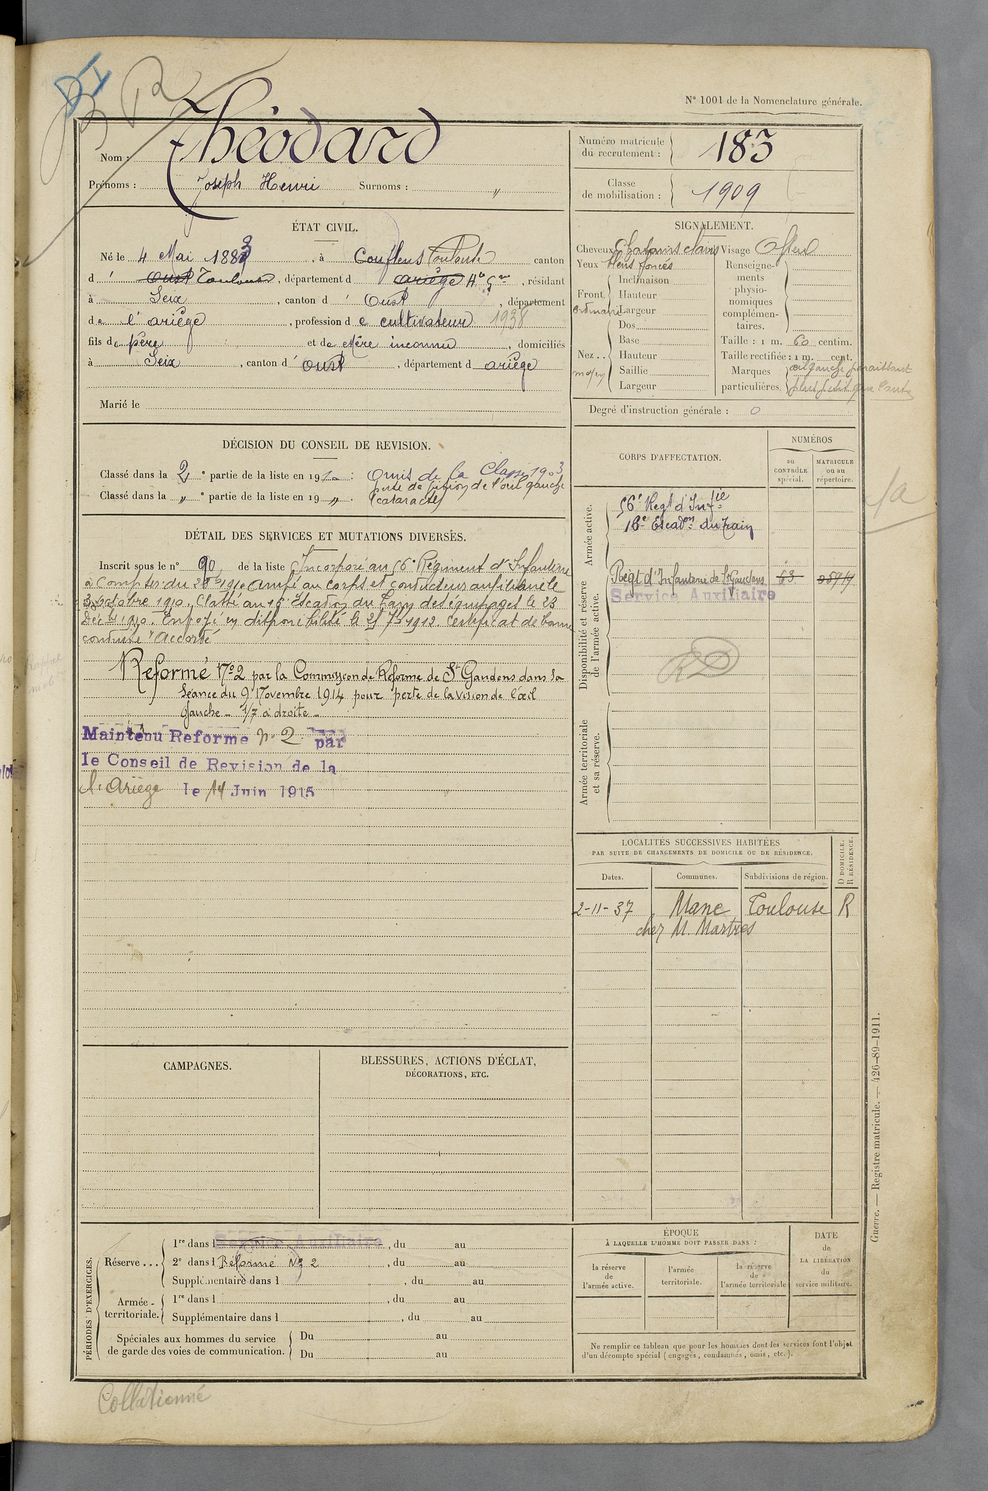 N° 1001 de la Nomenclature générale.
Nom : Théodard
Prénoms : Joseph Henri Surnoms : "
Numéro matricule du recrutement : 183
Classe de mobilisation : 1909
ÉTAT CIVIL.
Né le 4 Mai 1883, à Couflens Toulouse canton
d' Oust Toulouse, département d ariège Hte Gne, résidant
à Seix, canton d' Oust, département
de l'ariège, profession de cultivateur 1938
fils de père et de Mère inconnu, domiciliés
à Seix, canton d' oust, département d ariège
Marié le
SIGNALEMENT.
Cheveux Chatains clairs Visage Ovale
Yeux bleus foncés
Front ordinaire
Inclinaison
Hauteur
Largeur
Nez.. moyen
Dos
Base
Hauteur
Saillie
Largeur
Renseignements physionomiques complémentaires.
Taille : 1 m. 60 centim.
Taille rectifiée : 1 m. cent.
Marques particulières. œil gauche paraissant
plus petit que l'autre
Degré d'instruction générale : 0
DÉCISION DU CONSEIL DE REVISION.
Classé dans la 2 e partie de la liste en 191 : Omis de la Classe 1903
perte de vision de l'œil gauche
Classé dans la " e partie de la liste en 19 " . (cataracte)
DÉTAIL DES SERVICES ET MUTATIONS DIVERSES.
Inscrit sous le n° 90 de la liste Incorporé au 56e Régiment d'Infanterie
à compter du 1910 arrivé au corps et conducteur auxiliaire le
3 octobre 1910. Classé au 16e Escadron du Train des équipages le 23
Déc 1910. Envoyé en disponibilité le 25 7bre 1912. Certificat de bonne
conduite "Accordé"
Reformé N°2 par la Commission de Réforme de St Gaudens dans la
séance du 9 Novembre 1914 pour perte de la vision de l'œil
gauche - 1/7 à droite -
Maintenu Reforme n° 2 par
le Conseil de Revision de la
l'Ariège le 14 Juin 1915
CORPS D'AFFECTATION.
NUMÉROS
au CONTRÔLE spécial.
MATRICULE ou au répertoire.
Armée active.
56e Regt d'Infie
16e Escadon du Train
Disponibilité et réserve de l'armée active.
Régt d'Infanterie de St Gaudens 53
Service Auxiliaire
RD
Armée territoriale et sa réserve.
LOCALITÉS SUCCESSIVES HABITÉES
PAR SUITE DE CHANGEMENTS DE DOMICILE OU DE RÉSIDENCE.
Dates. Communes. Subdivisions de région. D DOMICILE. R RÉSIDENCE.
2-11-37 Mane Toulouse R
chez M. Martres
CAMPAGNES.
BLESSURES, ACTIONS D'ÉCLAT,
DÉCORATIONS, ETC.
PÉRIODES D'EXERCICES.
Réserve...
1re dans l Service Auxiliaire, du au
2e dans l Réformé N° 2, du au
Supplémentaire dans l , du au
Armée territoriale.
1re dans l , du au
Supplémentaire dans l , du au
Spéciales aux hommes du service
de garde des voies de communication.
Du au
Du au
ÉPOQUE
À LAQUELLE L'HOMME DOIT PASSER DANS :
la réserve de l'armée active.
l'armée territoriale.
la réserve de l'armée territoriale
DATE
de
LA LIBÉRATION
du
service militaire.
Ne remplir ce tableau que pour les hommes dont les services font l'objet
d'un décompte spécial (engagés, condamnés, omis, etc.).
Guerre. — Registre matricule. — 426-89-1911.
Collationné